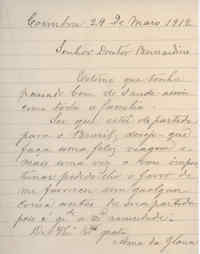 Coimbra 29 de Maio 1912
Senhor Doutor Bernardino
Estimo que tenha
passado bem de saude assim
como toda a familia
Sei que está de partida
para o Brasil, desejo que
faça uma feliz viagem e
mais uma vez o vou impor
tunar pedindo lhe o favor de
me favorecer em qualquer
coisa antes da sua partida
pois é
De V.